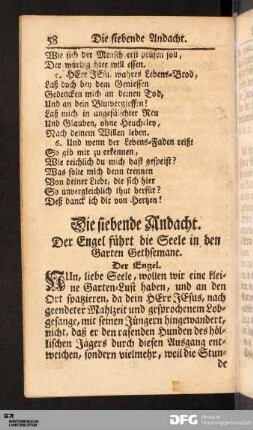 58 Die siebende Andacht.
Wie sich der Mensch erst prüfen soll,
Der würdig hier will essen.
5. HErr JEsu, wahres Lebens-Brod,
Laß doch bey dem Geniessen
Gedencken mich an deinen Tod,
Und an dein Blutvergiessen!
Laß mich in ungefälschter Reu
Und Glauben, ohne Heucheley,
Nach deinem Willen leben.
6. Und wenn der Lebens-Faden reißt
So gib mir zu erkennen,
Wie reichlich du mich hast gespeißt?
Was solte mich denn trennen
Von deiner Liebe, die sich hier
So unvergleichlich thut herfür?
Deß danck ich dir von Hertzen!
Die siebende Andacht.
Der Engel führt die Seele in den
Garten Gethsemane.
Der Engel.
NUn, liebe Seele, wollen wir eine klei-
ne Garten-Lust haben, und an den
Ort spatzieren, da dein HErr JEsus, nach
geendeter Mahlzeit und gesprochenem Lob-
gesange, mit seinen Jüngern hingewandert,
nicht, daß er den rasenden Hunden des höl-
lischen Jägers durch diesen Ausgang ent-
weichen, sondern vielmehr, weil die Stun-
de
DFG Deutsche
Forschungsgemeinschaft